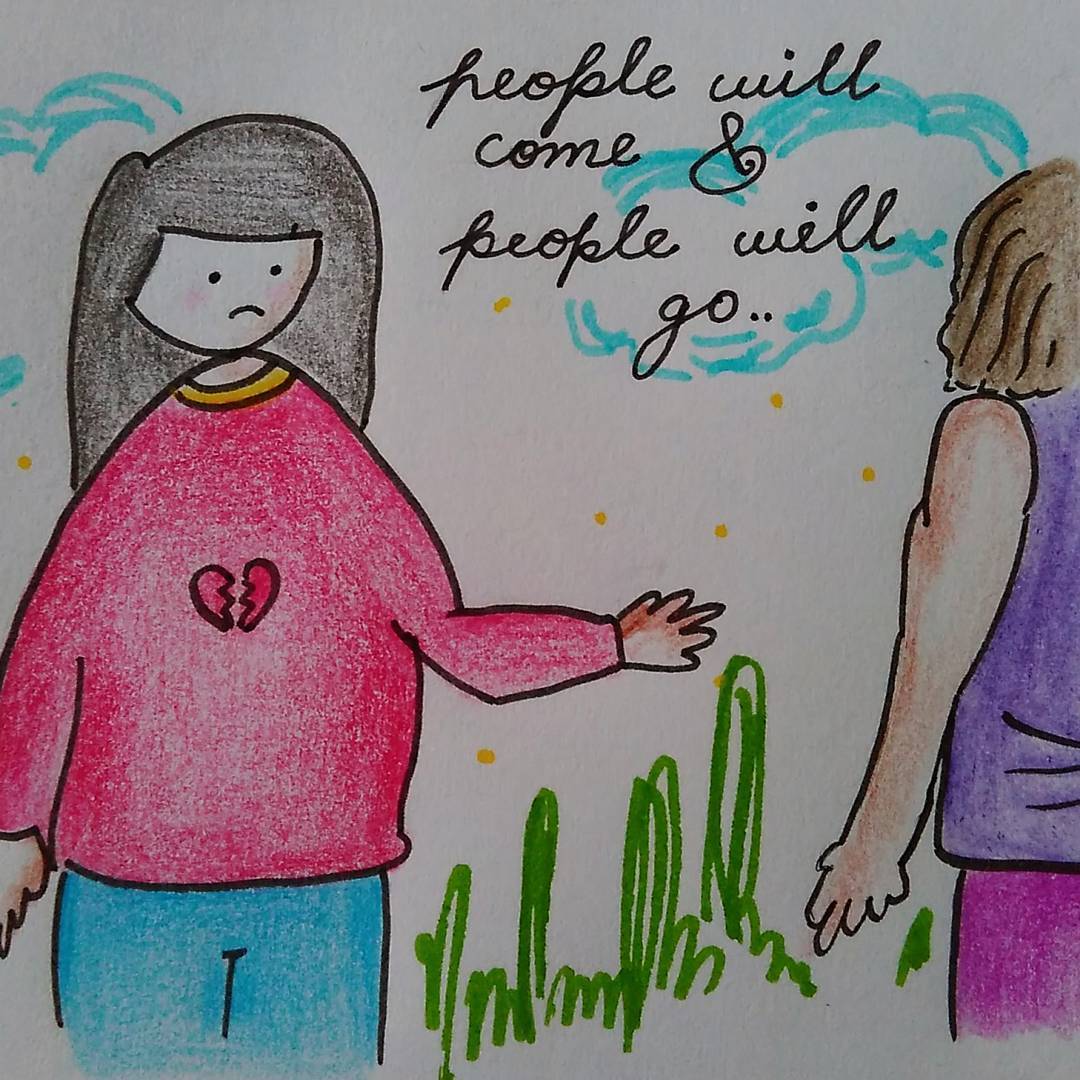 people will
come &
people will
go..